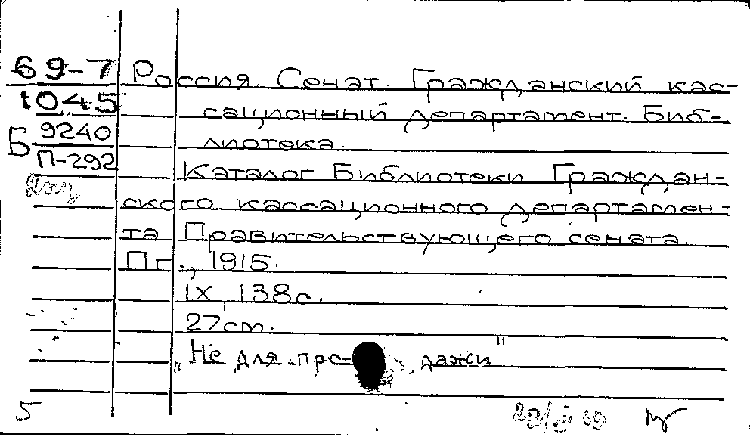 69-7
1045
Б 9240
П-292
Россия. Сенат. Гражданский кас-
сационный департамент. Биб-
лиотека
Каталог Библиотеки Граждан-
ского кассационного департамен-
та Правительствующего сената.
Пг., 1915.
IX, 138с.
27cm.
"Не для про- дажи"
5